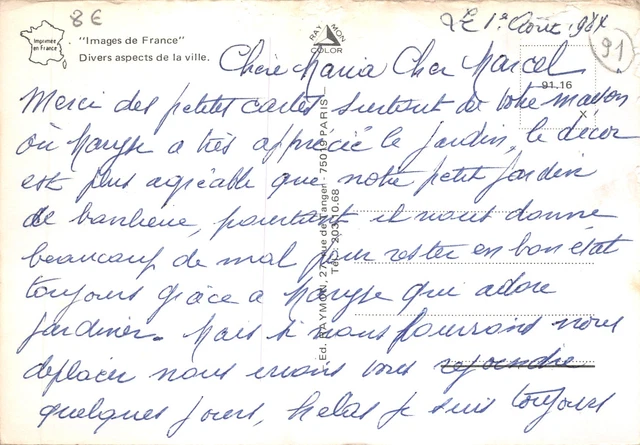 8€
Le 1er Août 1984
91
Imprimée
en France
"Images de France"
Divers aspects de la ville.
RAYMON
COLOR
91.16
X
Chère Maria Cher Marcel
Merci des petites cartes surtout de votre maison
où Maryse a très apprécié le jardin, le décor
est plus agréable que notre petit jardin
de banlieue, pourtant il nous donne
beaucoup de mal pour rester en bon état
toujours grâce a Maryse qui adore
jardiner. Mais si nous pouvions nous
deplacer nous irions vous rejoindre
quelques jours, helas je suis toujours
Ed. RAYMON, 27, rue de Tanger - 75019 PARIS
Tél. 203.10.68